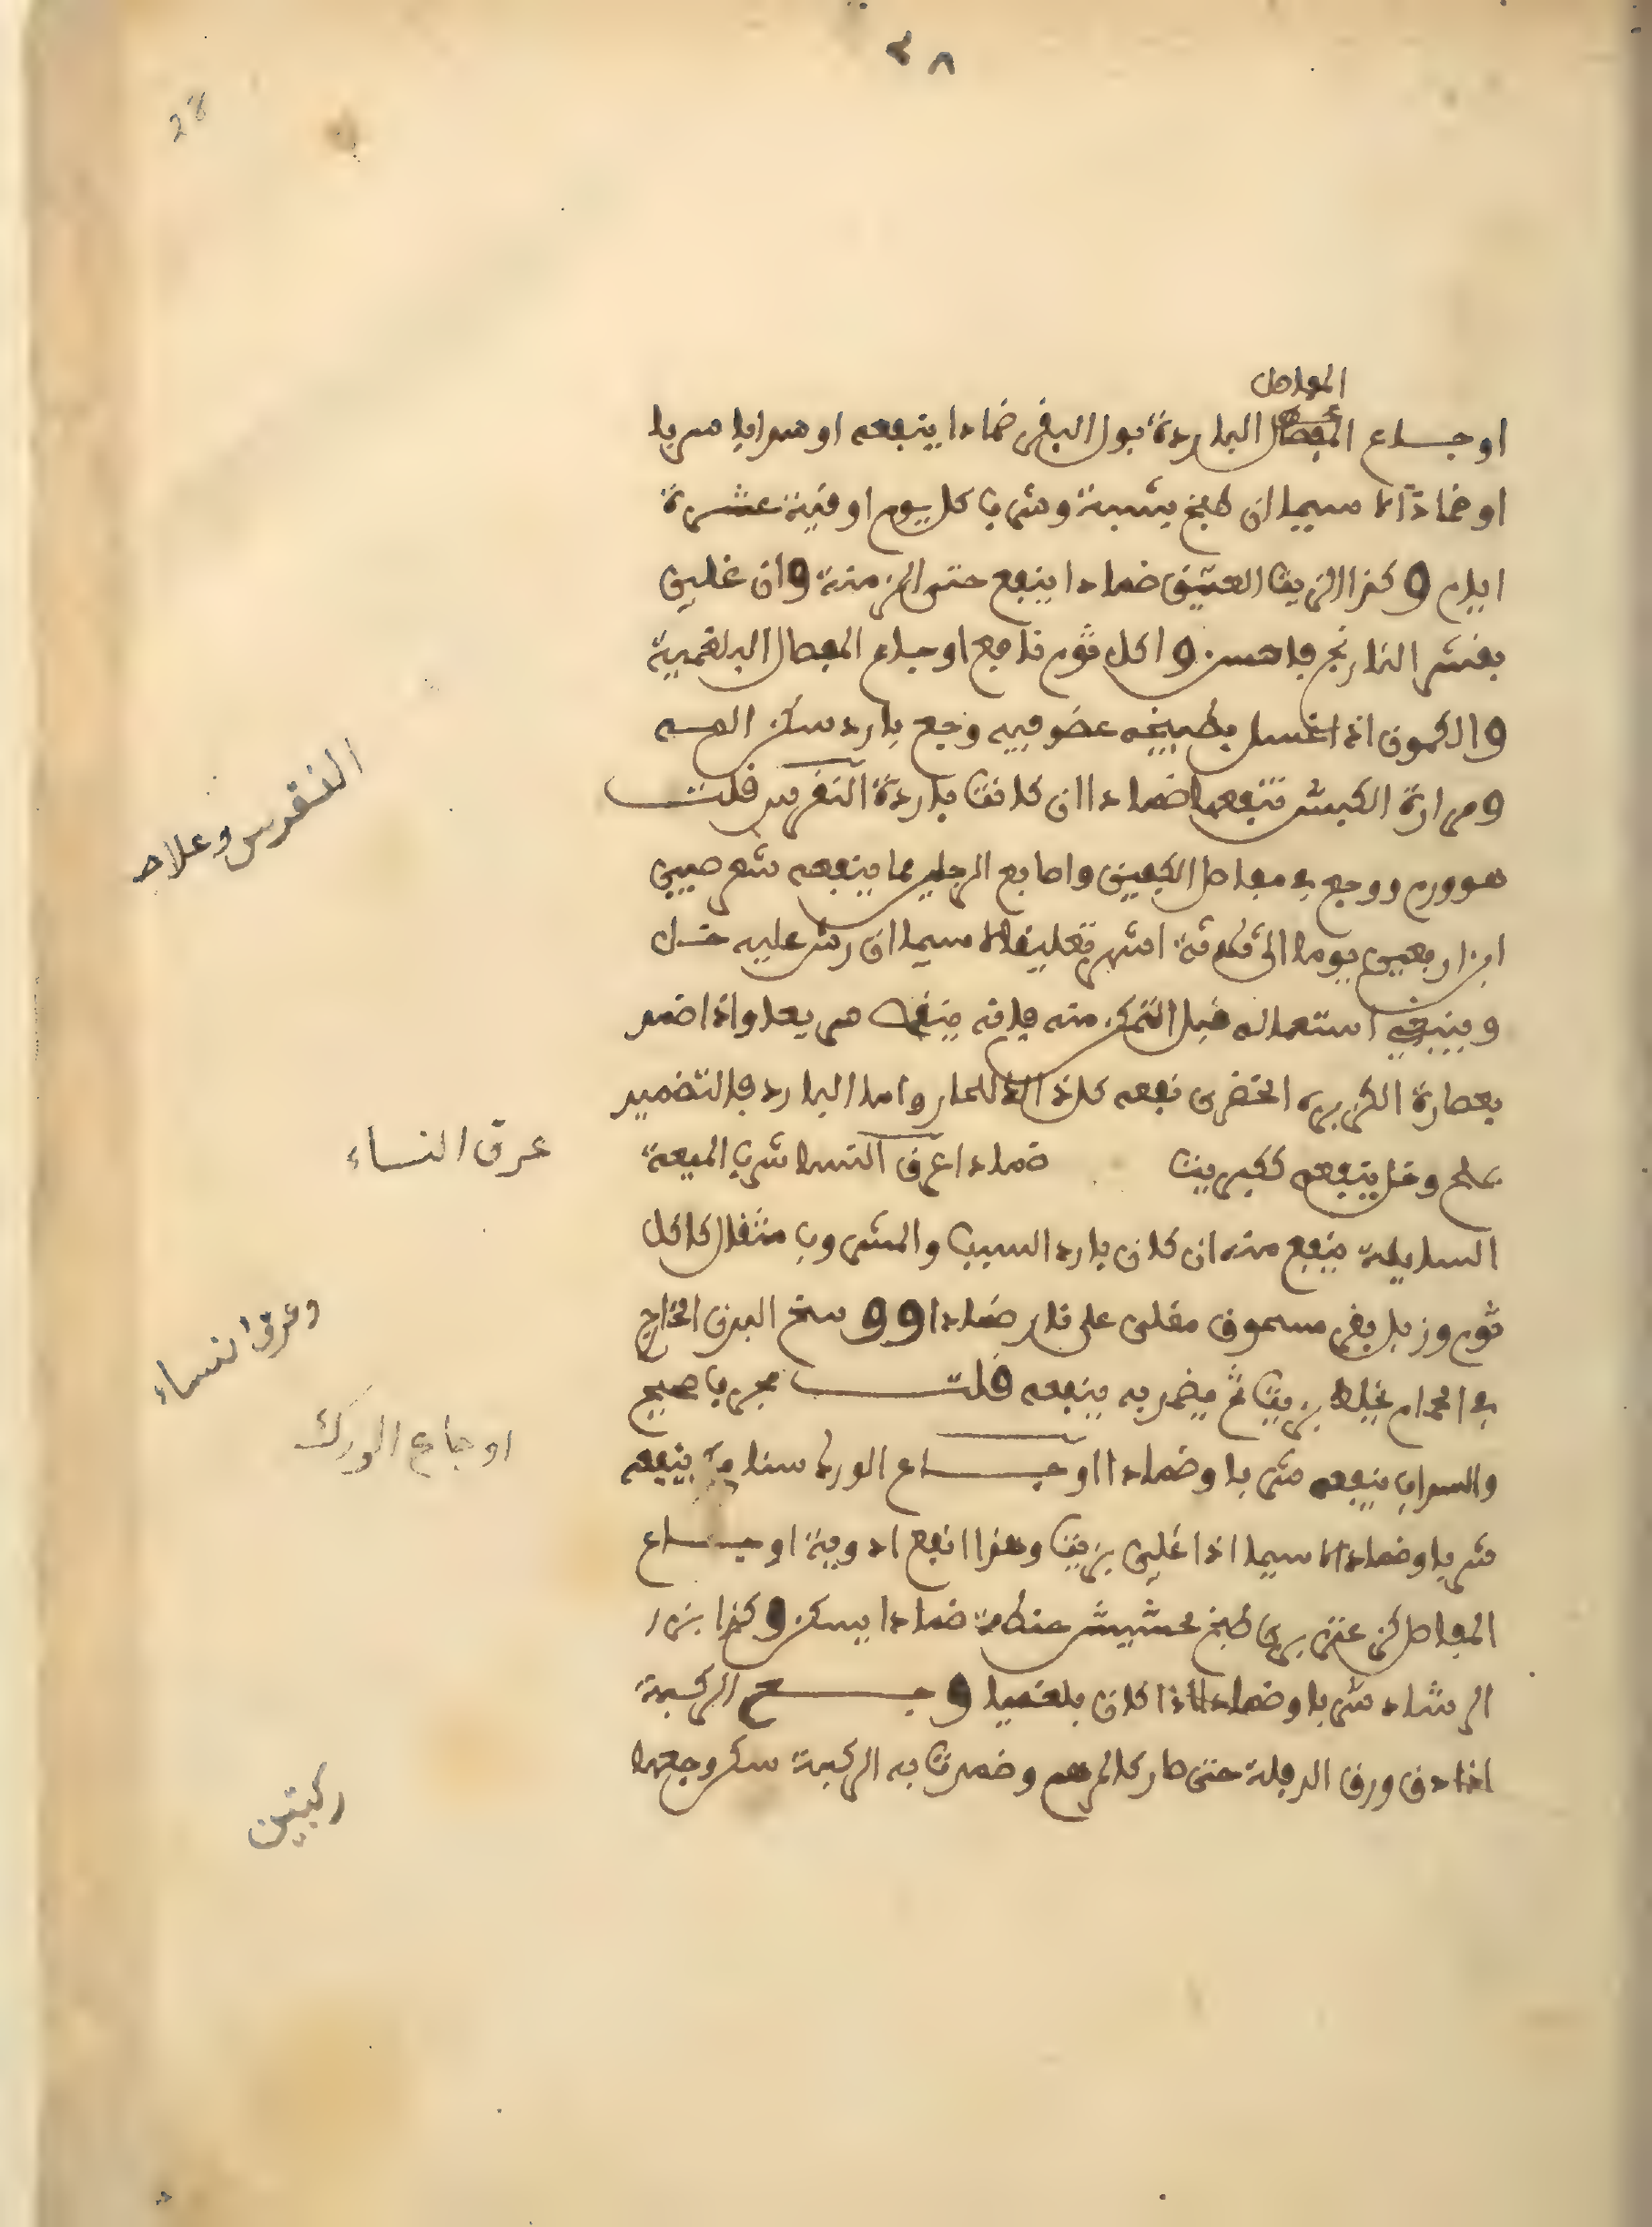 ٢٨
28
المفاصل
اوجاع المفاصل الباردة بول البقر ضمادا ينفعه او سرابا سربا
او ضمادا لا سيما ان طبخ بشبت وشرب كل يوم اوقية عشرة
ايام وكذا الزيت العتيق ضمادا ينفع حتى المزمنة وان غلي
بقشر النارنج فاحسن واكل ثوم نافع اوجاع المفصال البلغمية
والكمون اذا غسل بطبيخه عضو فيه وجع بارد سكن المه
ومرارة الكبش تنفعها ضمادا ان كانت باردة النقرس قلت
هو ورم ووجع في مفاصل الكعبين واصابع الرجلين مما ينفعه شعر صبي
ابن اربعين يوما الى ثلاثة اشهر تعليقا لا سيما ان رش عليه خل
وينبغي استعماله قبل التمكن منه فانه ينفعه سريعا واذا ضمد
بعصارة الكزبرة الخضرى نفعه كذا الحار واما البارد فالتضميد
بملح وخل ينفعه ككبريت ضمادا عرق النسا شرب الميعة
السايلة ينفع منه ان كان بارد السبب والمشروب مثقال كاكل
ثوم وزبل بقر مسحوق مقلى على نار ضمادا ووسخ البدن الخارج
في الحمام يخلط بزيت ثم يضمد به ينفعه قلت مجرب صحيح
والسراب ينفعه شربا وضمادا اوجاع الورك سنا ينفعه
شربا وضمادا لا سيما اذا غلي بزيت وهذا انفع ادوية اوجاع
المفاصل كزعنز بري طبخ بحشيش حنطة ضمادا يسكن وكذا بزر
الرشاد شربا وضمادا اذا كان بلغميا وجع الركبة
اذا دق ورق الدفلة حتى صار كالمرهم وضمدت به الركبة سكن وجعها
النقرس وعلاجه
عرق النساء
وعرق النساء
اوجاع الورك
ركبتين